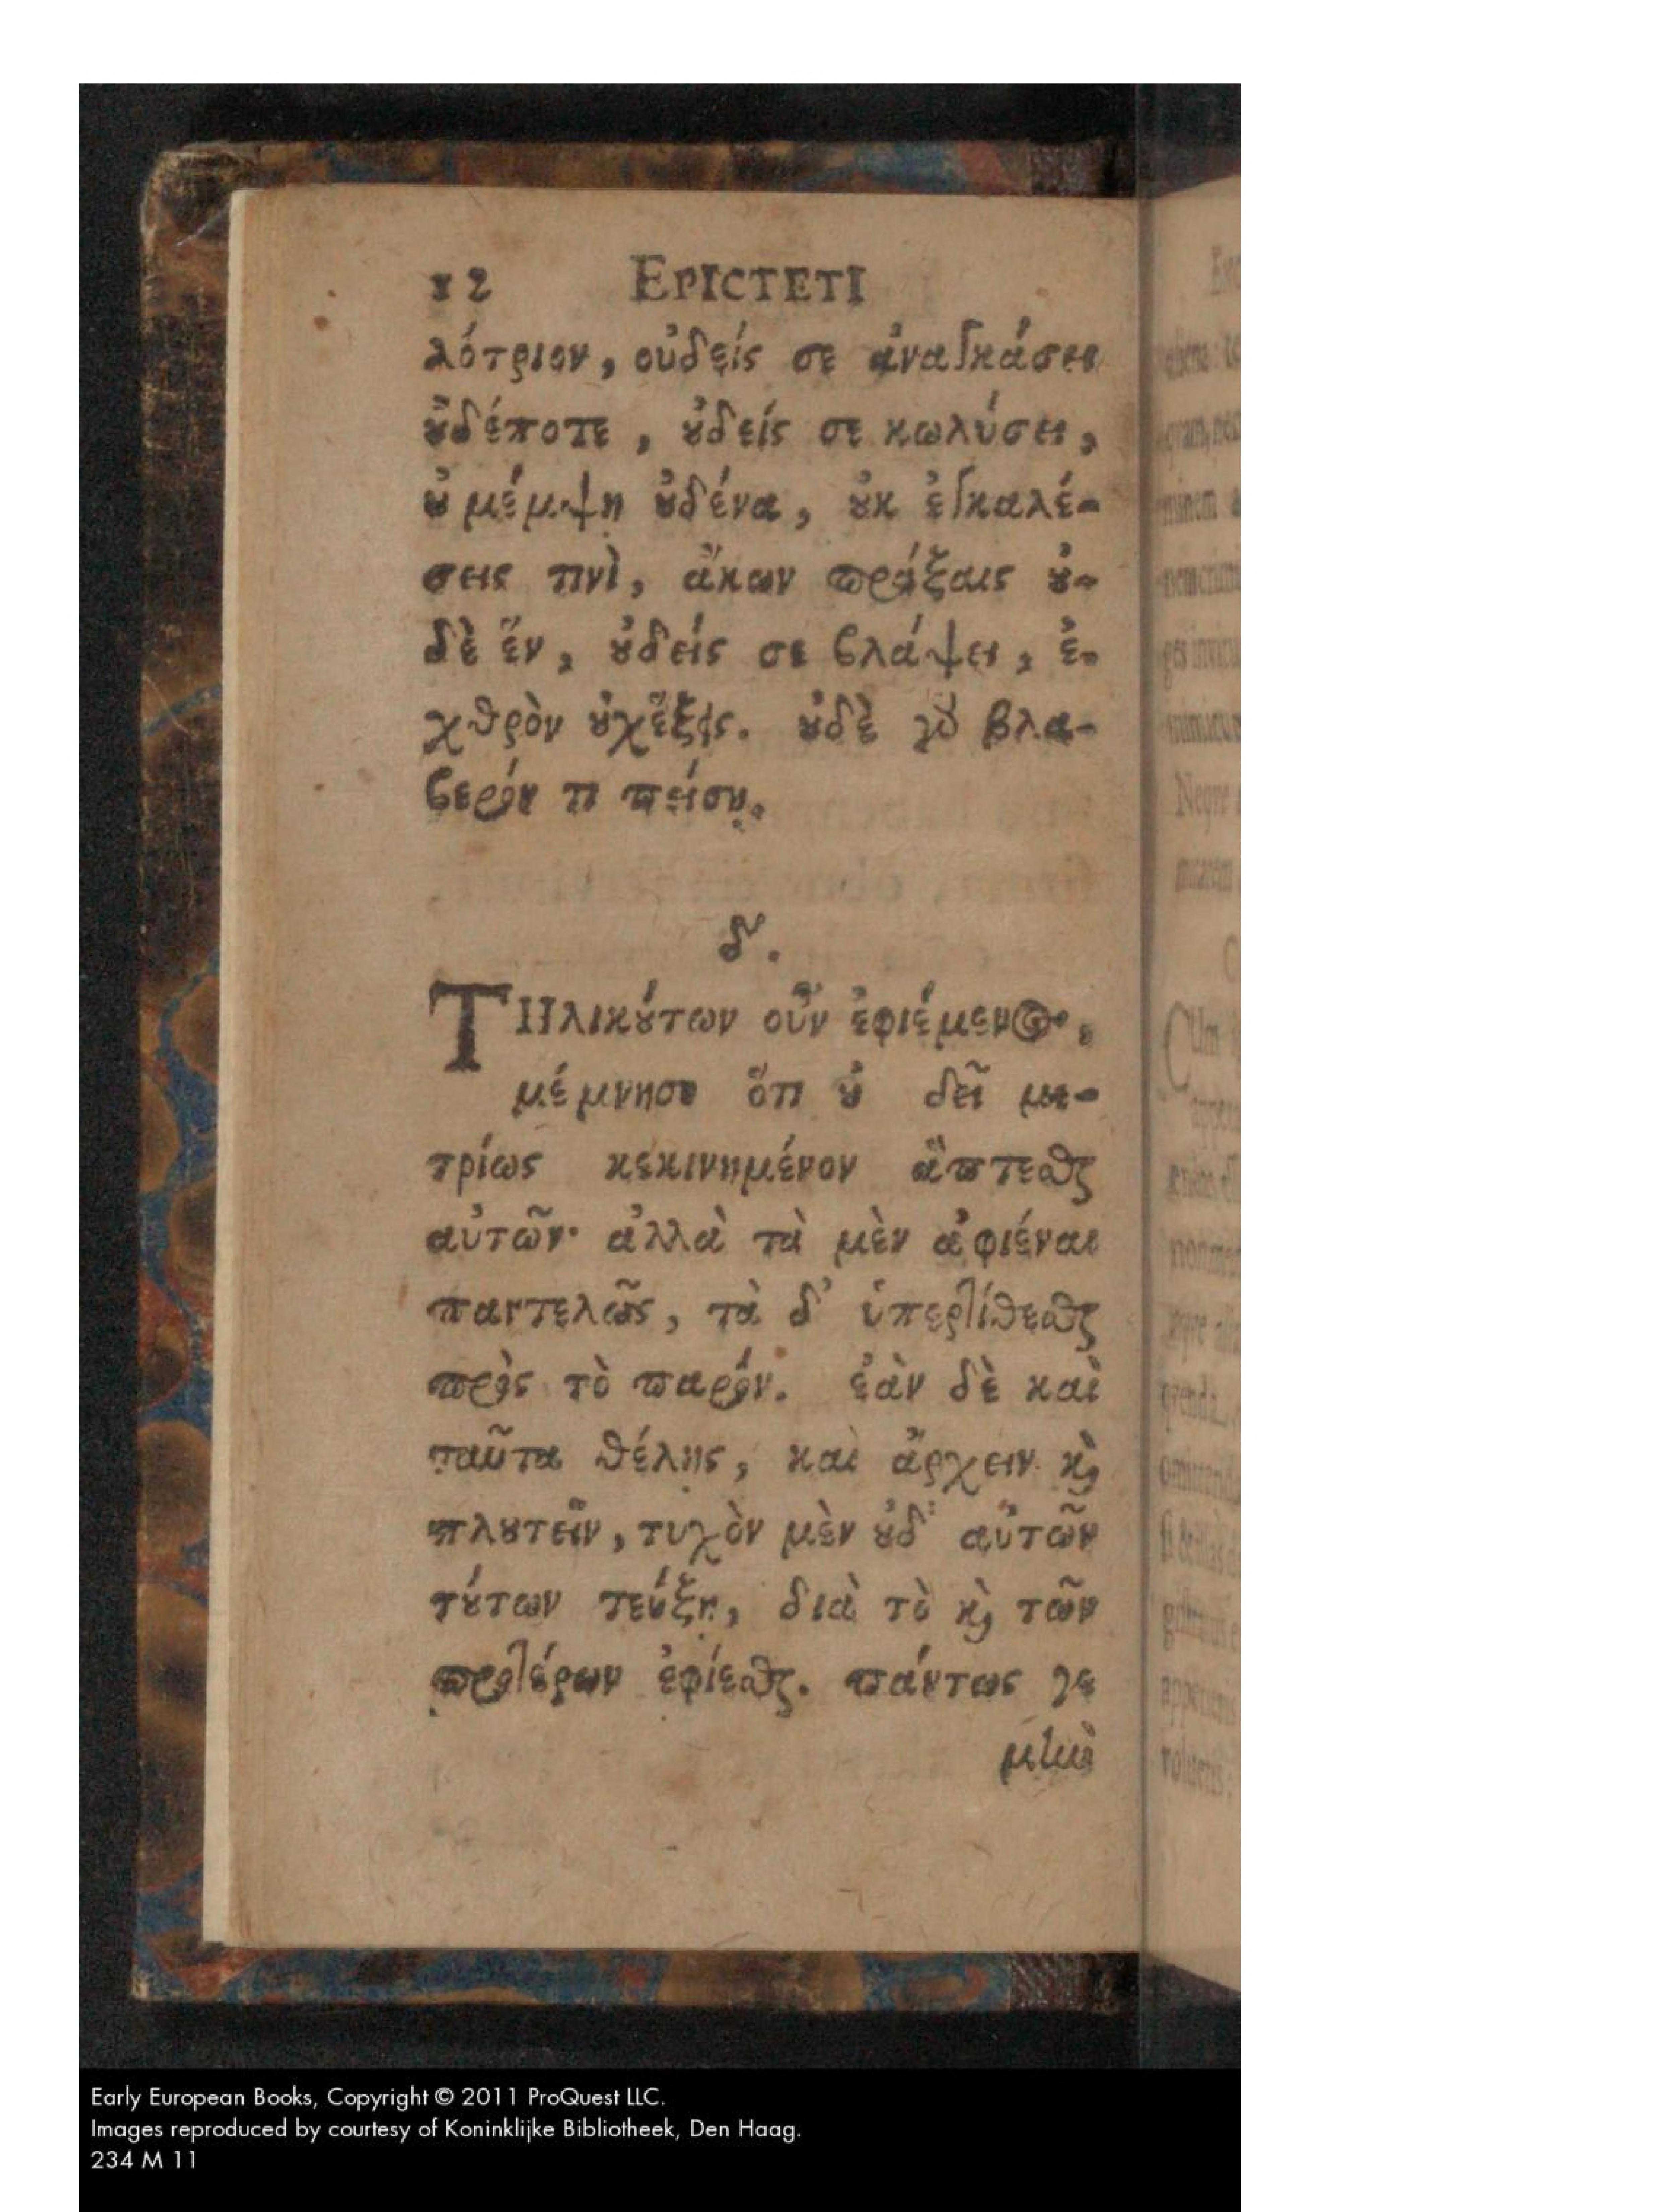 12 EPICTETI
λότριον, οὐδείς σε ἀναγκάσει
ȣ̓δέποτε, ȣ̓δείς σε κωλύσει,
ȣ̓ μέμψη ȣ̓δένα, ȣ̓κ ἐγκαλέ-
σεις τινὶ, ἄκων πράξαις ȣ̓-
δὲ ἕν, ȣ̓δείς σε βλάψει, ἐ-
χθρὸν ȣ̓χ ἕξεις. ȣ̓δὲ γὰρ βλα-
βερόν τι πείσῃ.
δ'.
ΤΗλικȣ́των οὖν ἐφιέμενος,
μέμνησο ὅτι ȣ̓ δεῖ με-
τρίως κεκινημένον ἅπτεσθαι
αὐτῶν· ἀλλὰ τὰ μὲν ἀφιέναι
παντελῶς, τὰ δ' ὑπερτίθεσθαι
πρὸς τὸ παρόν. ἐὰν δὲ καὶ
ταῦτα θέλῃς, καὶ ἄρχειν κϳ
πλȣτεῖν, τυχὸν μὲν ȣ̓δ' αὐτῶν
τȣ́των τεύξῃ, διὰ τὸ κϳ τῶν
προτέρων ἐφίεσθαι. πάντως γε
μὴν
Early European Books, Copyright © 2011 ProQuest LLC.
Images reproduced by courtesy of Koninklijke Bibliotheek, Den Haag.
234 M 11